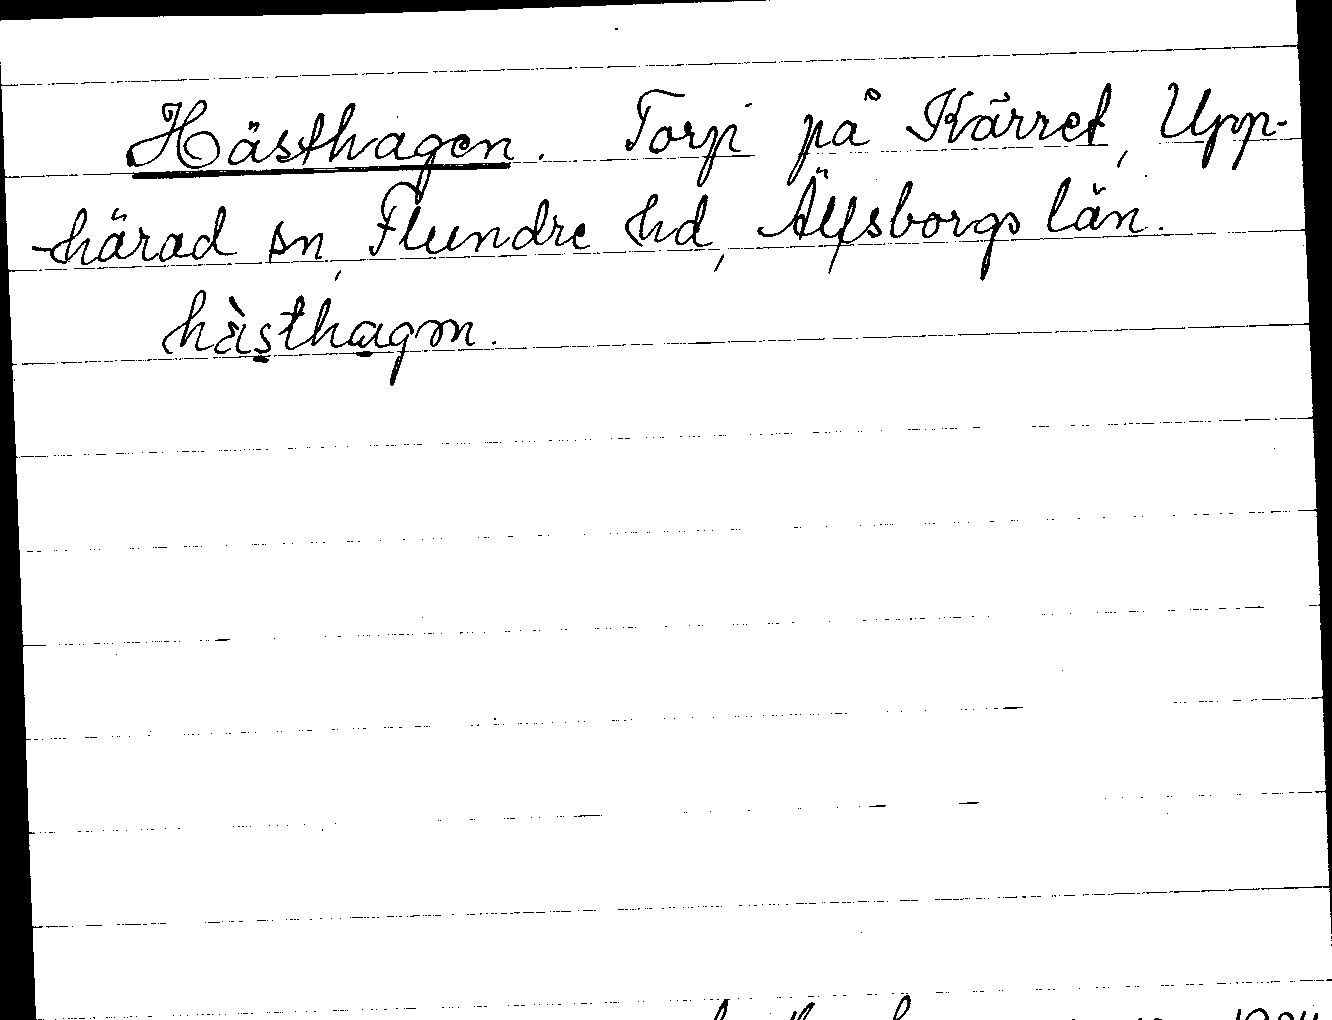 Hästhagen. Torp på Kärret, Upp-
härad sn, Flundre hd, Älfsborgs län.
hàsthagm.